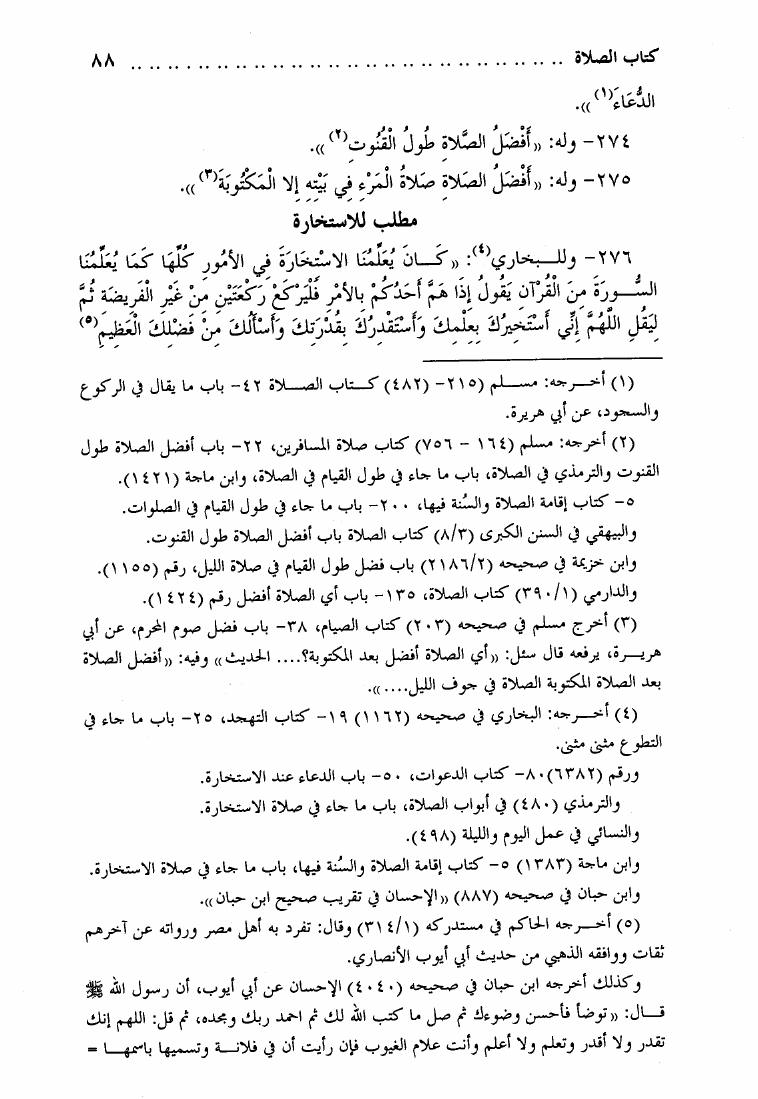 كتاب الصلاة .................................................. ٨٨
الدُّعَاءَ(١)».
٢٧٤- وله: «أَفْضَلُ الصَّلاةِ طُولُ الْقُنُوتِ(٢)».
٢٧٥- وله: «أَفْضَلُ الصَّلاةِ صَلاةُ الْمَرْءِ فِي بَيْتِهِ إِلا الْمَكْتُوبَةَ(٣)».
مطلب للاستخارة
٢٧٦- وللـبخاري(٤): «كَـانَ يُعَلِّمُنَا الاسْتِخَارَةَ فِي الأُمُورِ كُلِّهَا كَمَا يُعَلِّمُنَا
السُّـورَةَ مِنَ الْقُرْآنِ يَقُولُ إِذَا هَمَّ أَحَدُكُمْ بِالأَمْرِ فَلْيَرْكَعْ رَكْعَتَيْنِ مِنْ غَيْرِ الْفَرِيضَةِ ثُمَّ
لِيَقُلِ اللَّهُمَّ إِنِّي أَسْتَخِيرُكَ بِعِلْمِكَ وَأَسْتَقْدِرُكَ بِقُدْرَتِكَ وَأَسْأَلُكَ مِنْ فَضْلِكَ الْعَظِيمِ(٥)
(١) أخـرجه: مسـلم (٢١٥- (٤٨٢) كـتاب الصـلاة ٤٢- باب ما يقال في الركوع
والسجود، عن أبي هريرة.
(٢) أخرجه: مسلم (١٦٤ - ٧٥٦) كتاب صلاة المسافرين، ٢٢- باب أفضل الصلاة طول
القنوت والترمذي في الصلاة، باب ما جاء في طول القيام في الصلاة، وابن ماجة (١٤٢١).
٥- كتاب إقامة الصلاة والسُنة فيها، ٢٠٠- باب ما جاء في طول القيام في الصلوات.
والبيهقي في السنن الكبرى (٨/٣) كتاب الصلاة باب أفضل الصلاة طول القنوت.
وابن خزيمة في صحيحه (٢١٨٦/٢) باب فضل طول القيام في صلاة الليل، رقم (١١٥٥).
والدارمي (٣٩٠/١) كتاب الصلاة، ١٣٥- باب أي الصلاة أفضل رقم (١٤٢٤).
(٣) أخرج مسلم في صحيحه (٢٠٣) كتاب الصيام، ٣٨- باب فضل صوم المحرم، عن أبي
هريـرة، يرفعه قال سئل: «أي الصلاة أفضل بعد المكتوبة؟.... الحديث» وفيه: «أفضل الصلاة
بعد الصلاة المكتوبة الصلاة في جوف الليل....».
(٤) أخـرجه: البخاري في صحيحه (١١٦٢) ١٩- كتاب التهجد، ٢٥- باب ما جاء في
التطوع مثنى مثنى.
ورقم (٦٣٨٢)٨٠- كتاب الدعوات، ٥٠- باب الدعاء عند الاستخارة.
والترمذي (٤٨٠) في أبواب الصلاة، باب ما جاء في صلاة الاستخارة.
والنسائي في عمل اليوم والليلة (٤٩٨).
وابن ماجة (١٣٨٣) ٥- كتاب إقامة الصلاة والسُنة فيها، باب ما جاء في صلاة الاستخارة.
وابن حبان في صحيحه (٨٨٧) «الإحسان في تقريب صحيح ابن حبان».
(٥) أخـرجه الحاكم في مستدركه (٣١٤/١) وقال: تفرد به أهل مصر ورواته عن آخرهم
ثقات ووافقه الذهبي من حديث أبي أيوب الأنصاري.
وكذلك أخرجه ابن حبان في صحيحه (٤٠٤٠) الإحسان عن أبي أيوب، أن رسول الله ﷺ
قـال: «توضأ فأحسن وضوءك ثم صل ما كتب الله لك ثم احمد ربك ومجده، ثم قل: اللهم إنك
تقدر ولا أقدر وتعلم ولا أعلم وأنت علام الغيوب فإن رأيت أن في فلانـة وتسميها باسمهـا =